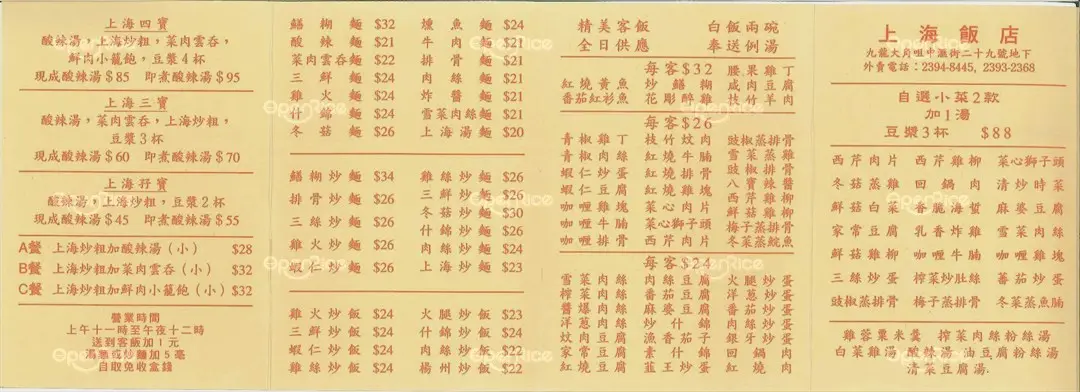 上海四寶
酸辣湯，上海炒粗，菜肉雲吞，
鮮肉小籠飽，豆漿4杯
現成酸辣湯$85 即煮酸辣湯$95
上海三寶
酸辣湯，菜肉雲吞，上海炒粗，
豆漿3杯
現成酸辣湯$60 即煮酸辣湯$70
上海孖寶
酸辣湯，上海炒粗，豆漿2杯
現成酸辣湯$45 即煮酸辣湯$55
A餐 上海炒粗加酸辣湯(小) $28
B餐 上海炒粗加菜肉雲吞(小) $32
C餐 上海炒粗加鮮肉小籠飽(小) $32
營業時間
上午十一時至午夜十二時
送到客飯加1元
湯麵或炒麵加5毫
自取免收盒錢
鱔糊麵 $32 燻魚麵 $24
酸辣麵 $21 牛肉麵 $21
菜肉雲吞麵 $22 排骨麵 $21
三鮮麵 $24 肉絲麵 $21
雞火麵 $24 炸醬麵 $21
什錦麵 $24 雪菜肉絲麵 $21
冬菇麵 $26 上海湯麵 $20
鱔糊炒麵 $34 雞絲炒麵 $26
排骨炒麵 $26 三鮮炒麵 $26
三絲炒麵 $26 冬菇炒麵 $30
雞火炒麵 $26 什錦炒麵 $26
蝦仁炒麵 $26 肉絲炒麵 $24
上海炒麵 $23
雞火炒飯 $24 火腿炒飯 $23
三鮮炒飯 $24 什錦炒飯 $24
蝦仁炒飯 $24 肉絲炒飯 $22
雞絲炒飯 $24 楊州炒飯 $22
精美客飯 白飯兩碗
全日供應 奉送例湯
每客$32
紅燒黃魚 炒鱔糊 腰果雞丁
番茄紅衫魚 花彫醉雞 咸肉豆腐
枝竹羊肉
每客$26
青椒雞丁 枝竹炆肉 豉椒蒸排骨
青椒肉絲 紅燒牛腩 雪菜蒸雞
蝦仁炒蛋 紅燒排骨 豉椒排骨
蝦仁豆腐 紅燒雞塊 八寶辣醬
咖喱雞塊 菜心肉片 西芹雞柳
咖喱牛腩 菜心獅子頭 鮮菇雞柳
咖喱排骨 西芹肉片 梅子蒸排骨
冬菜蒸鯇魚
每客$24
雪菜肉絲 肉絲豆腐 火腿炒蛋
榨菜肉絲 番茄豆腐 洋葱炒蛋
醬爆肉絲 麻婆豆腐 番茄炒蛋
洋葱肉絲 炒什錦 肉絲炒蛋
炆肉豆腐 漁香茄子 銀牙炒蛋
家常豆腐 素什錦 回鍋肉
紅燒豆腐 韮王炒蛋 紅燒肉
上海飯店
九龍大角咀中滙街二十九號地下
外賣電話：2394-8445, 2393-2368
自選小菜2款
加1湯
豆漿3杯 $88
西芹肉片 西芹雞柳 菜心獅子頭
冬菇蒸雞 回鍋肉 清炒時菜
鮮菇白菜 香脆海蜇 麻婆豆腐
家常豆腐 乳香炸雞 雪菜肉絲
鮮菇雞柳 咖喱牛腩 咖喱雞塊
三絲炒蛋 榨菜炒肚絲 番茄炒蛋
豉椒蒸排骨 梅子蒸排骨 冬菜蒸魚腩
雞蓉粟米羹 榨菜肉絲粉絲湯
白菜雞湯 酸辣湯 油豆腐粉絲湯
清菜豆腐湯
OpenRice